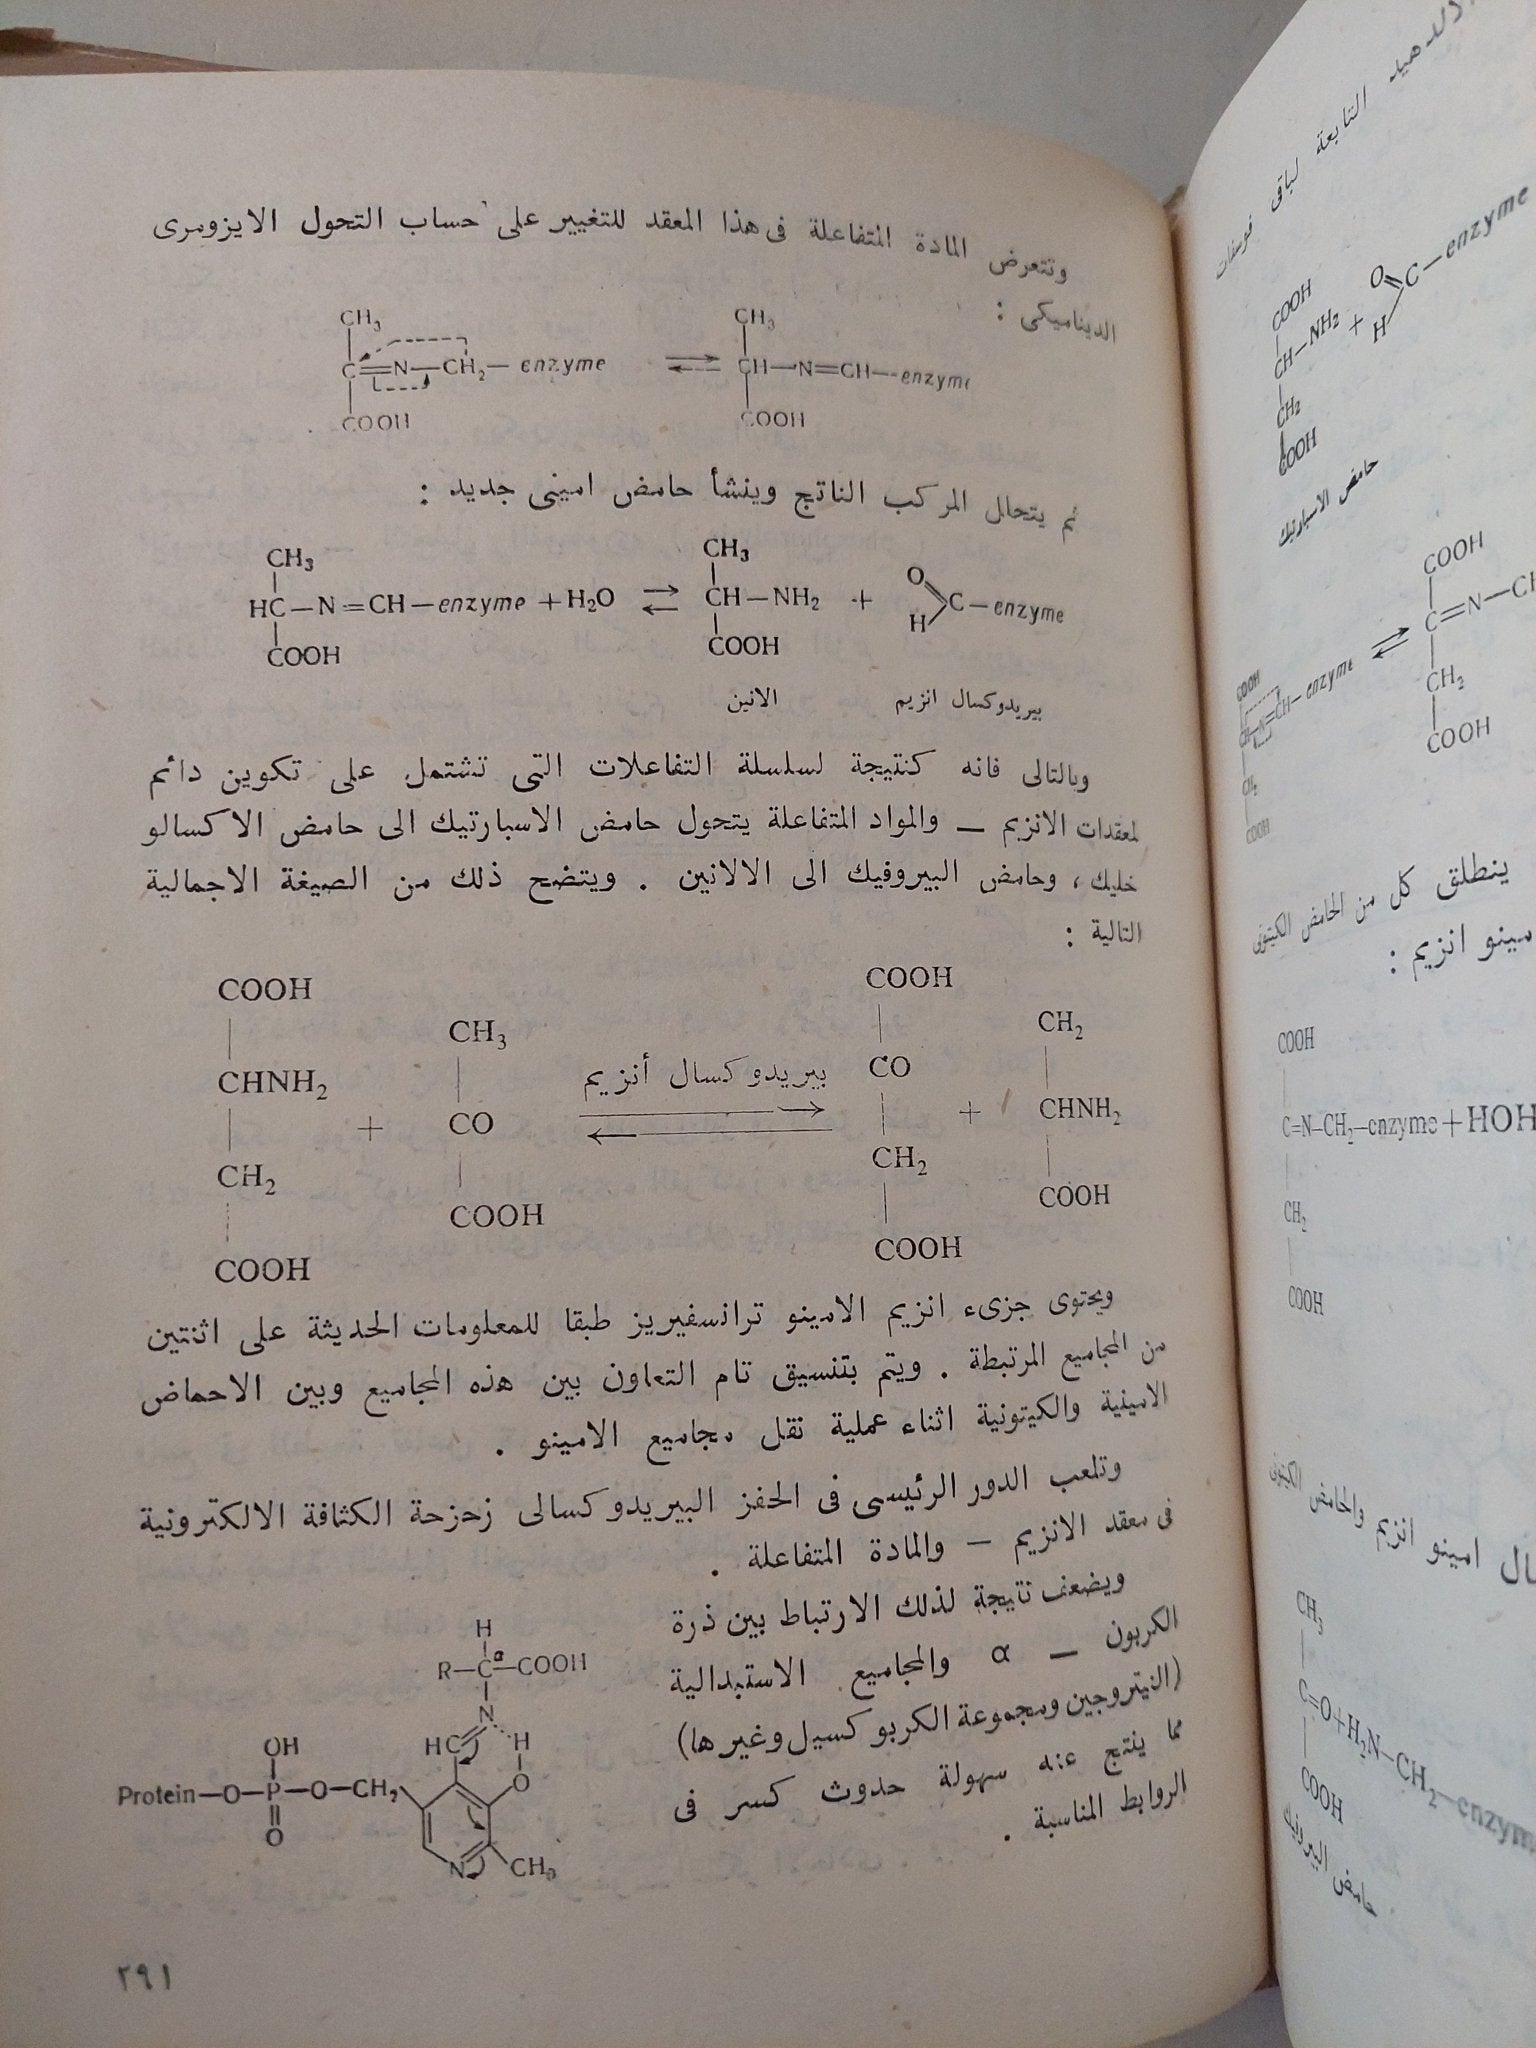 وتتعرض المادة المتفاعلة فى هذا المعقد للتغيير على حساب التحول الايزوميرى
الديناميكى :
CH3
C=N—CH2—enzyme ⇌ CH—N=CH—enzyme
COOH
CH3
COOH
ثم يتحلل المركب الناتج وينشأ حامض امينى جديد :
CH3
HC—N=CH—enzyme + H2O ⇌ CH—NH2 + C—enzyme
COOH
CH3
COOH
O
H
الانين
بيريدوكسال انزيم
وبالتالى فانه كنتيجة لسلسلة التفاعلات التى تشتمل على تكوين دائم
لمعقدات الانزيم — والمواد المتفاعلة يتحول حامض الاسبارتيك الى حامض الاكسالو
خليك ، وحامض البيروفيك الى الالانين . ويتضح ذلك من الصيغة الاجمالية
التالية :
COOH
CHNH2
CH2
COOH
+
CH3
CO
COOH
بيريدوكسال أنزيم
⇌
COOH
CO
CH2
COOH
+
CH2
CHNH2
COOH
ويحتوى جزىء انزيم الامينو ترانسفيريز طبقا للمعلومات الحديثة على اثنتين
من المجاميع المرتبطة . ويتم بتنسيق تام التعاون بين هذه المجاميع وبين الاحماض
الامينية والكيتونية اثناء عملية نقل مجاميع الامينو .
وتلعب الدور الرئيسى فى الحفز البيريدوكسالى زحزحة الكثافة الالكترونية
فى معقد الانزيم — والمادة المتفاعلة .
ويضعف نتيجة لذلك الارتباط بين ذرة
الكربون — α والمجاميع الاستبدالية
(النيتروجين ومجموعة الكربوكسيل وغيرها)
مما ينتج عنه سهولة حدوث كسر فى
الروابط المناسبة .
H
R—Cα—COOH
N
HC H
OH O
Protein—O—P—O—CH2
O
N CH3
٢٩١
الالدهيد التابعة لباقى فوسفات
COOH
CH—NH2 + C—enzyme
O
H
CH2
COOH
حامض الاسبارتيك
COOH
CH—N=CH—enzyme ⇌
CH2
COOH
COOH
C=N—CH
CH2
COOH
ينطلق كل من الحامض الكيتونى
مينو انزيم :
COOH
C=N—CH2—enzyme+HOH
CH2
COOH
ال امينو انزيم والحامض الكيتونى
CH3
C=O+H2N—CH2—enzym
COOH
حامض البيروفيك